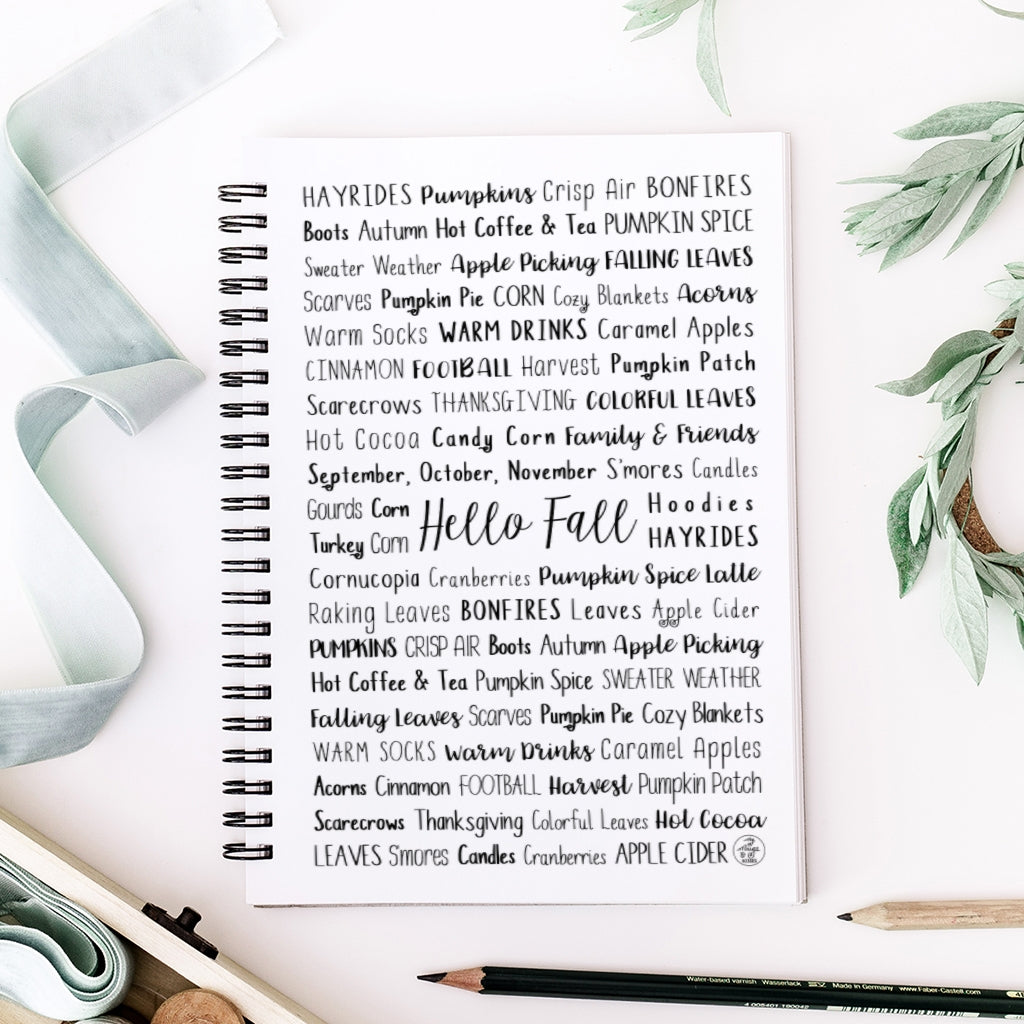 HAYRIDES Pumpkins Crisp Air BONFIRES
Boots Autumn Hot Coffee & Tea PUMPKIN SPICE
Sweater Weather Apple Picking FALLING LEAVES
Scarves Pumpkin Pie CORN Cozy Blankets Acorns
Warm Socks WARM DRINKS Caramel Apples
CINNAMON FOOTBALL Harvest Pumpkin Patch
Scarecrows THANKSGIVING COLORFUL LEAVES
Hot Cocoa Candy Corn Family & Friends
September, October, November S'mores Candles
Gourds Corn
Turkey Corn
Hello Fall
Hoodies
HAYRIDES
Cornucopia Cranberries Pumpkin Spice Latte
Raking Leaves BONFIRES Leaves Apple Cider
PUMPKINS CRISP AIR Boots Autumn Apple Picking
Hot Coffee & Tea Pumpkin Spice SWEATER WEATHER
Falling Leaves Scarves Pumpkin Pie Cozy Blankets
WARM SOCKS Warm Drinks Caramel Apples
Acorns Cinnamon FOOTBALL Harvest Pumpkin Patch
Scarecrows Thanksgiving Colorful Leaves Hot Cocoa
LEAVES S'mores Candles Cranberries APPLE CIDER
Water-based varnish Wasserlack Made in Germany www.Faber-Castell.com
4 005401 190042